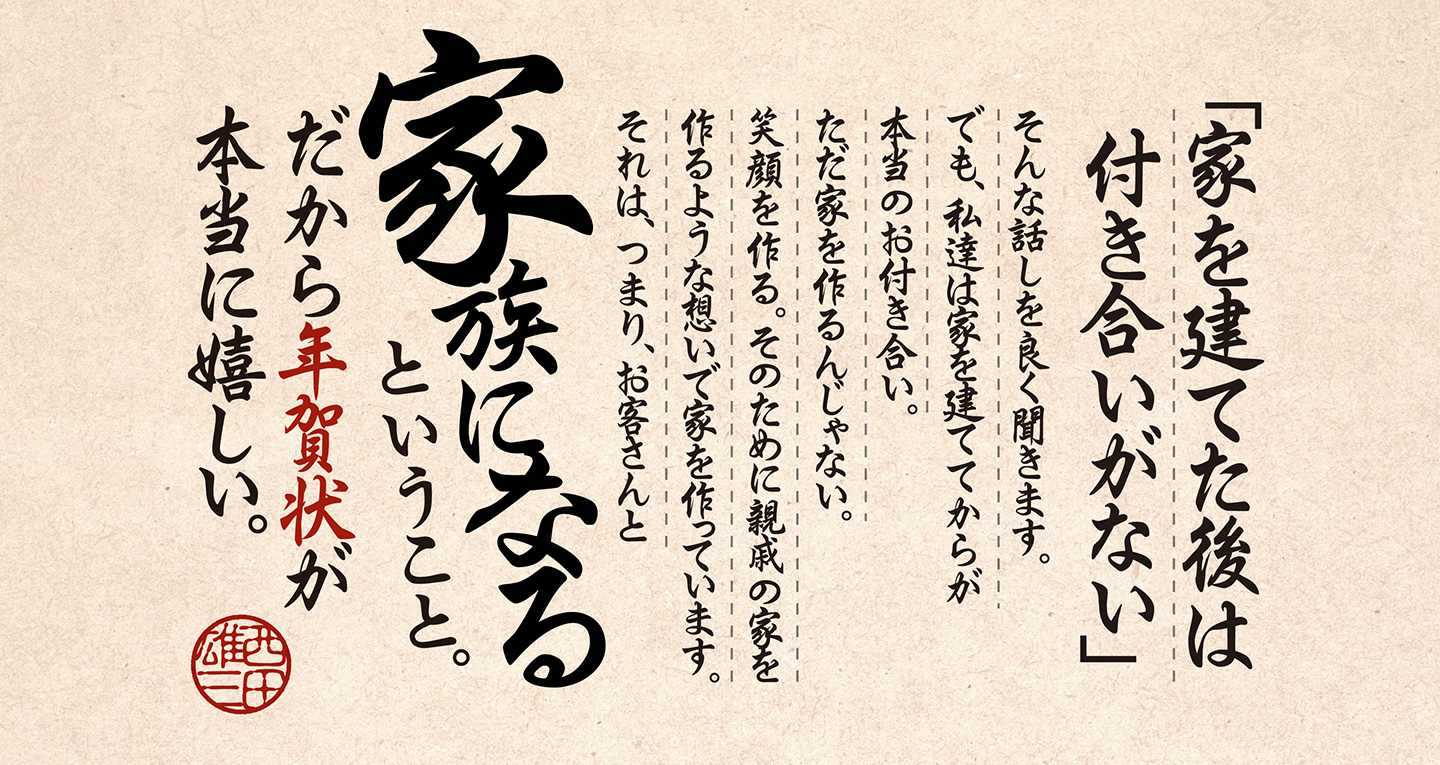 「家を建てた後は
付き合いがない」
そんな話しを良く聞きます。
でも、私達は家を建ててからが
本当のお付き合い。
ただ家を作るんじゃない。
笑顔を作る。そのために親戚の家を
作るような想いで家を作っています。
それは、つまり、お客さんと
家族になる
ということ。
だから年賀状が
本当に嬉しい。
西田
雄三